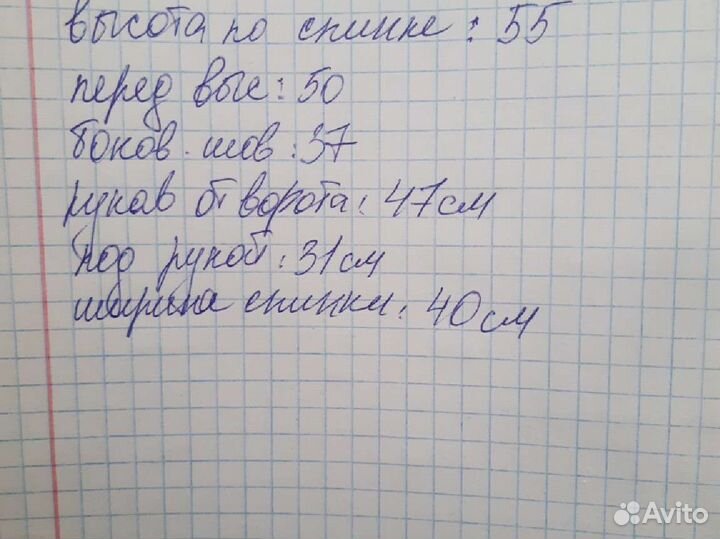 высота по спинке: 55
перед выс: 50
боков. шов: 37
рукав от ворота: 47см
под рукой: 31см
ширина спинки: 40см
Avito